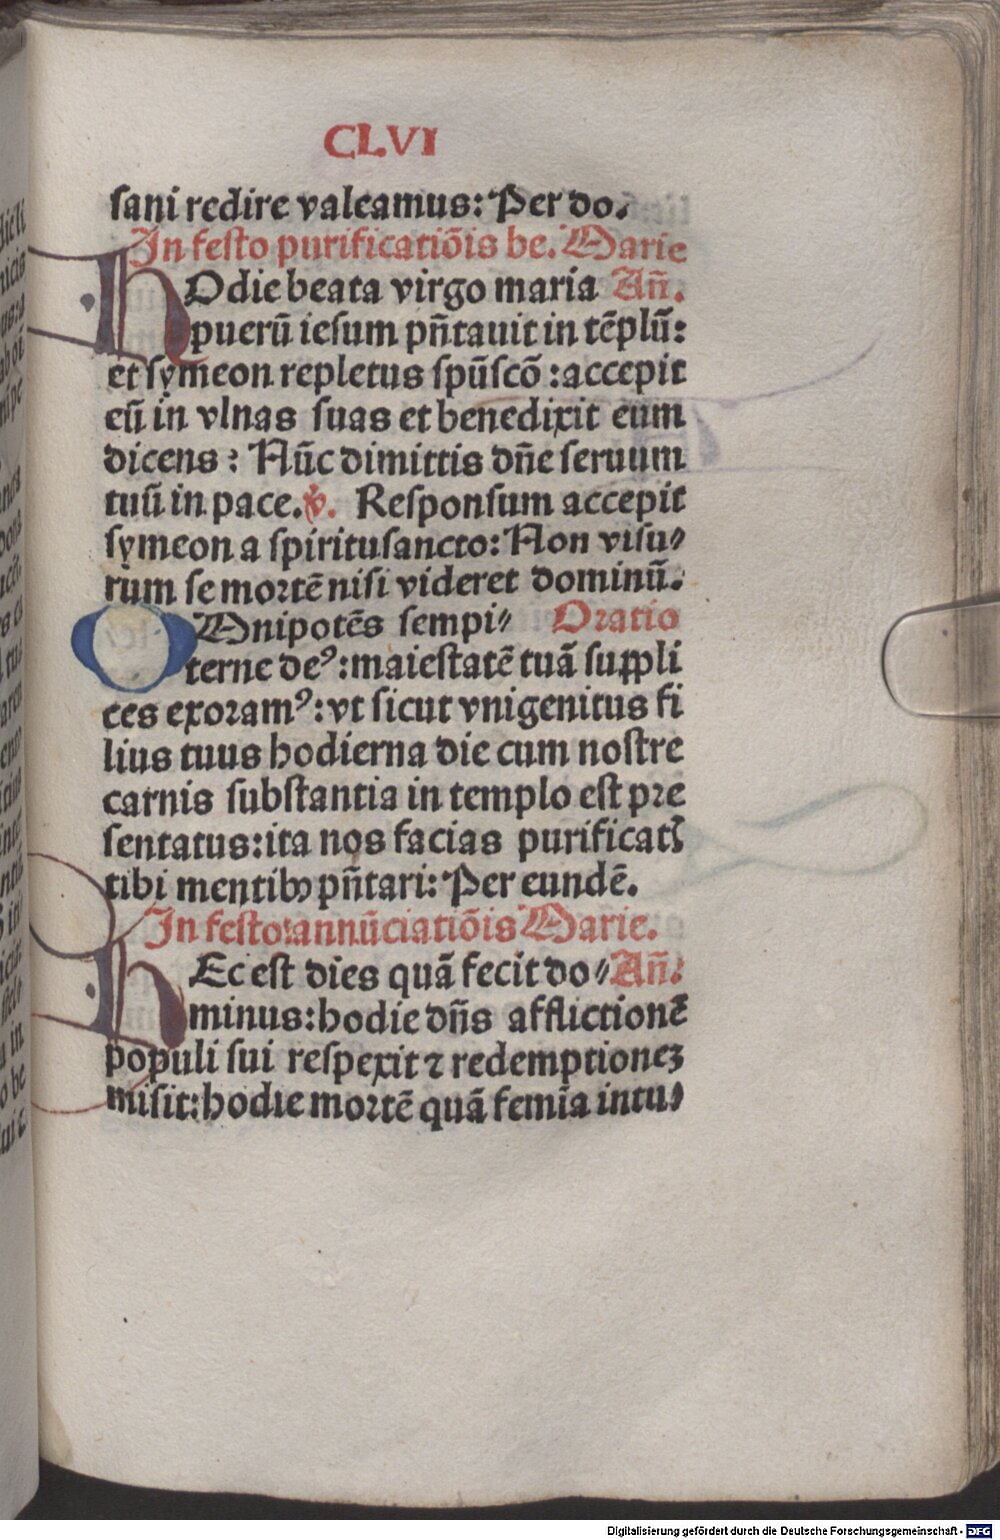 CLVI
sani redire valeamus: Per do.
In festo purificatiõis be. Marie
HOdie beata virgo maria Añ.
puerũ iesum pñtauit in tẽplũ:
et symeon repletus spũscõ: accepit
eũ in vlnas suas et benedixit eum
dicens: Nũc dimittis dñe seruum
tuũ in pace. ℣. Responsum accepit
symeon a spiritusancto: Non visu⸗
rum se mortẽ nisi videret dominũ.
OMnipotẽs sempi⸗ Oratio
terne deꝰ: maiestatẽ tuã suppli
ces exoramꝰ: vt sicut vnigenitus fi
lius tuus hodierna die cum nostre
carnis substantia in templo est pre
sentatus: ita nos facias purificatꝭ
tibi mentibꝫ pñtari: Per eundẽ.
In festo: annũciatiõis Marie.
HEc est dies quã fecit do⸗ Añ.
minus: hodie dñs afflictionẽ
populi sui respexit ⁊ redemptioneꝫ
misit: hodie mortẽ quã femĩa intu⸗
Digitalisierung gefördert durch die Deutsche Forschungsgemeinschaft - DFG